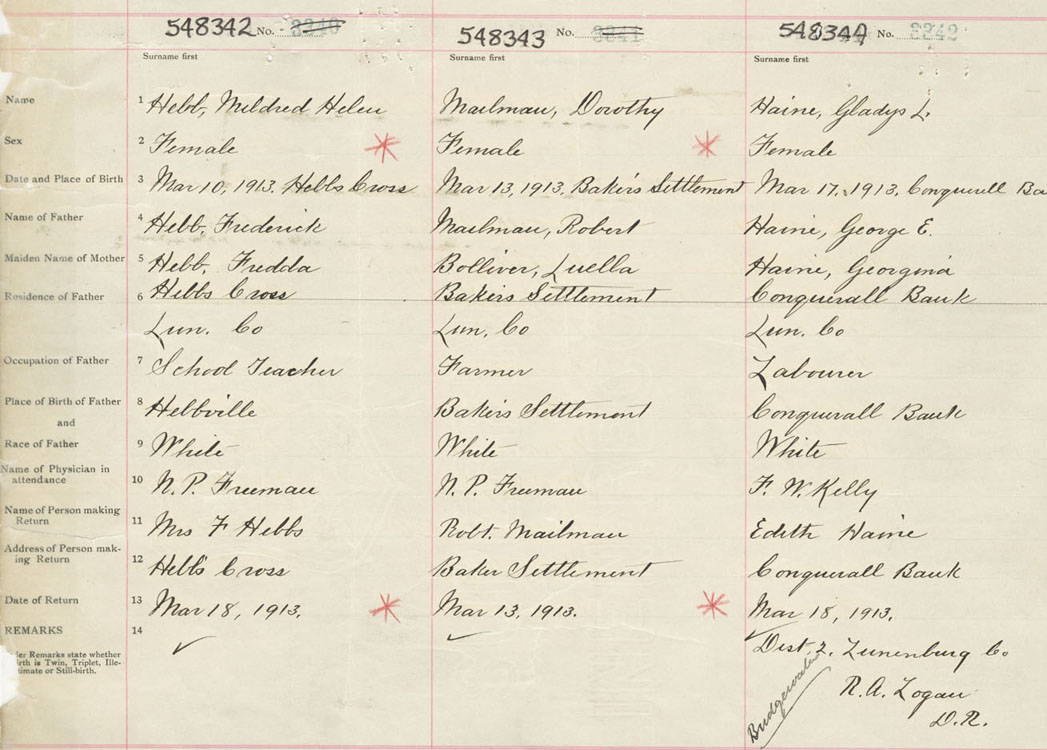 548342 No. 3340
548343 No. 3341
548344 No. 3342
Surname first
Surname first
Surname first
Name 1 Hebb, Mildred Helen
Mailman, Dorothy
Haine, Gladys L.
Sex 2 Female
Female
Female
Date and Place of Birth 3 Mar 10, 1913. Hebbs Cross
Mar 13, 1913. Baker's Settlement
Mar 17, 1913, Conquerall Ba
Name of Father 4 Hebb, Frederick
Mailman, Robert
Haine, George E.
Maiden Name of Mother 5 Hebb, Fredda
Bolliver, Luella
Haine, Georgina
Residence of Father 6 Hebbs Cross
Bakers Settlement
Conquerall Bank
Lun. Co
Lun. Co
Lun. Co
Occupation of Father 7 School Teacher
Farmer
Labourer
Place of Birth of Father 8 Hebbville
Bakers Settlement
Conquerall Bank
and
Race of Father 9 White
White
White
Name of Physician in
attendance 10 N. P. Freeman
N. P. Freeman
F. W. Kelly
Name of Person making
Return 11 Mrs F Hebbs
Robt. Mailman
Edith Haine
Address of Person mak-
ing Return 12 Hebb's Cross
Baker Settlement
Conquerall Bank
Date of Return 13 Mar 18, 1913.
Mar 13, 1913.
Mar 18, 1913.
REMARKS 14
der Remarks state whether
irth is Twin, Triplet, Ille-
timate or Still-birth.
Dist. 2. Lunenburg Co
Bridgewater
R. A. Logan
D. R.